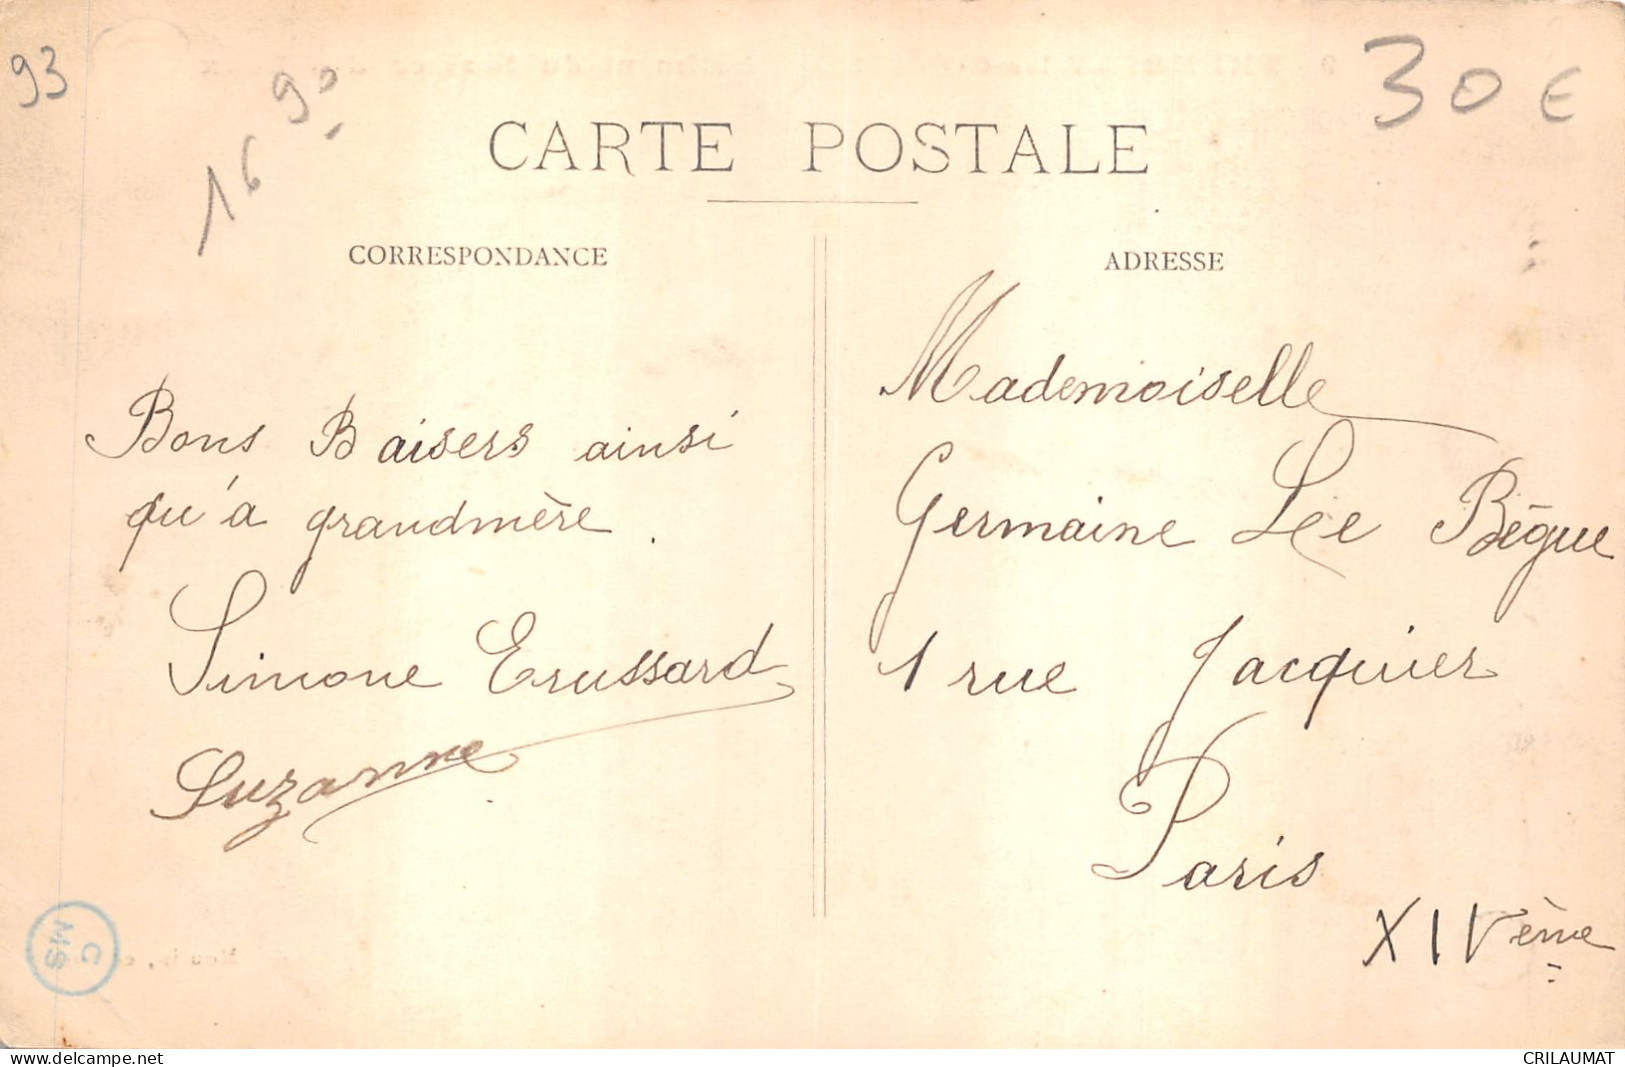 93
16 90
30 €
CARTE POSTALE
CORRESPONDANCE
ADRESSE
Bons Baisers ainsi
qu'à grandmère.
Simone Erussard
Suzanne
Mademoiselle
Germaine Lee Bègue
1 rue Jacquier
Paris
XIVème
C
MS
www.delcampe.net
CRILAUMAT